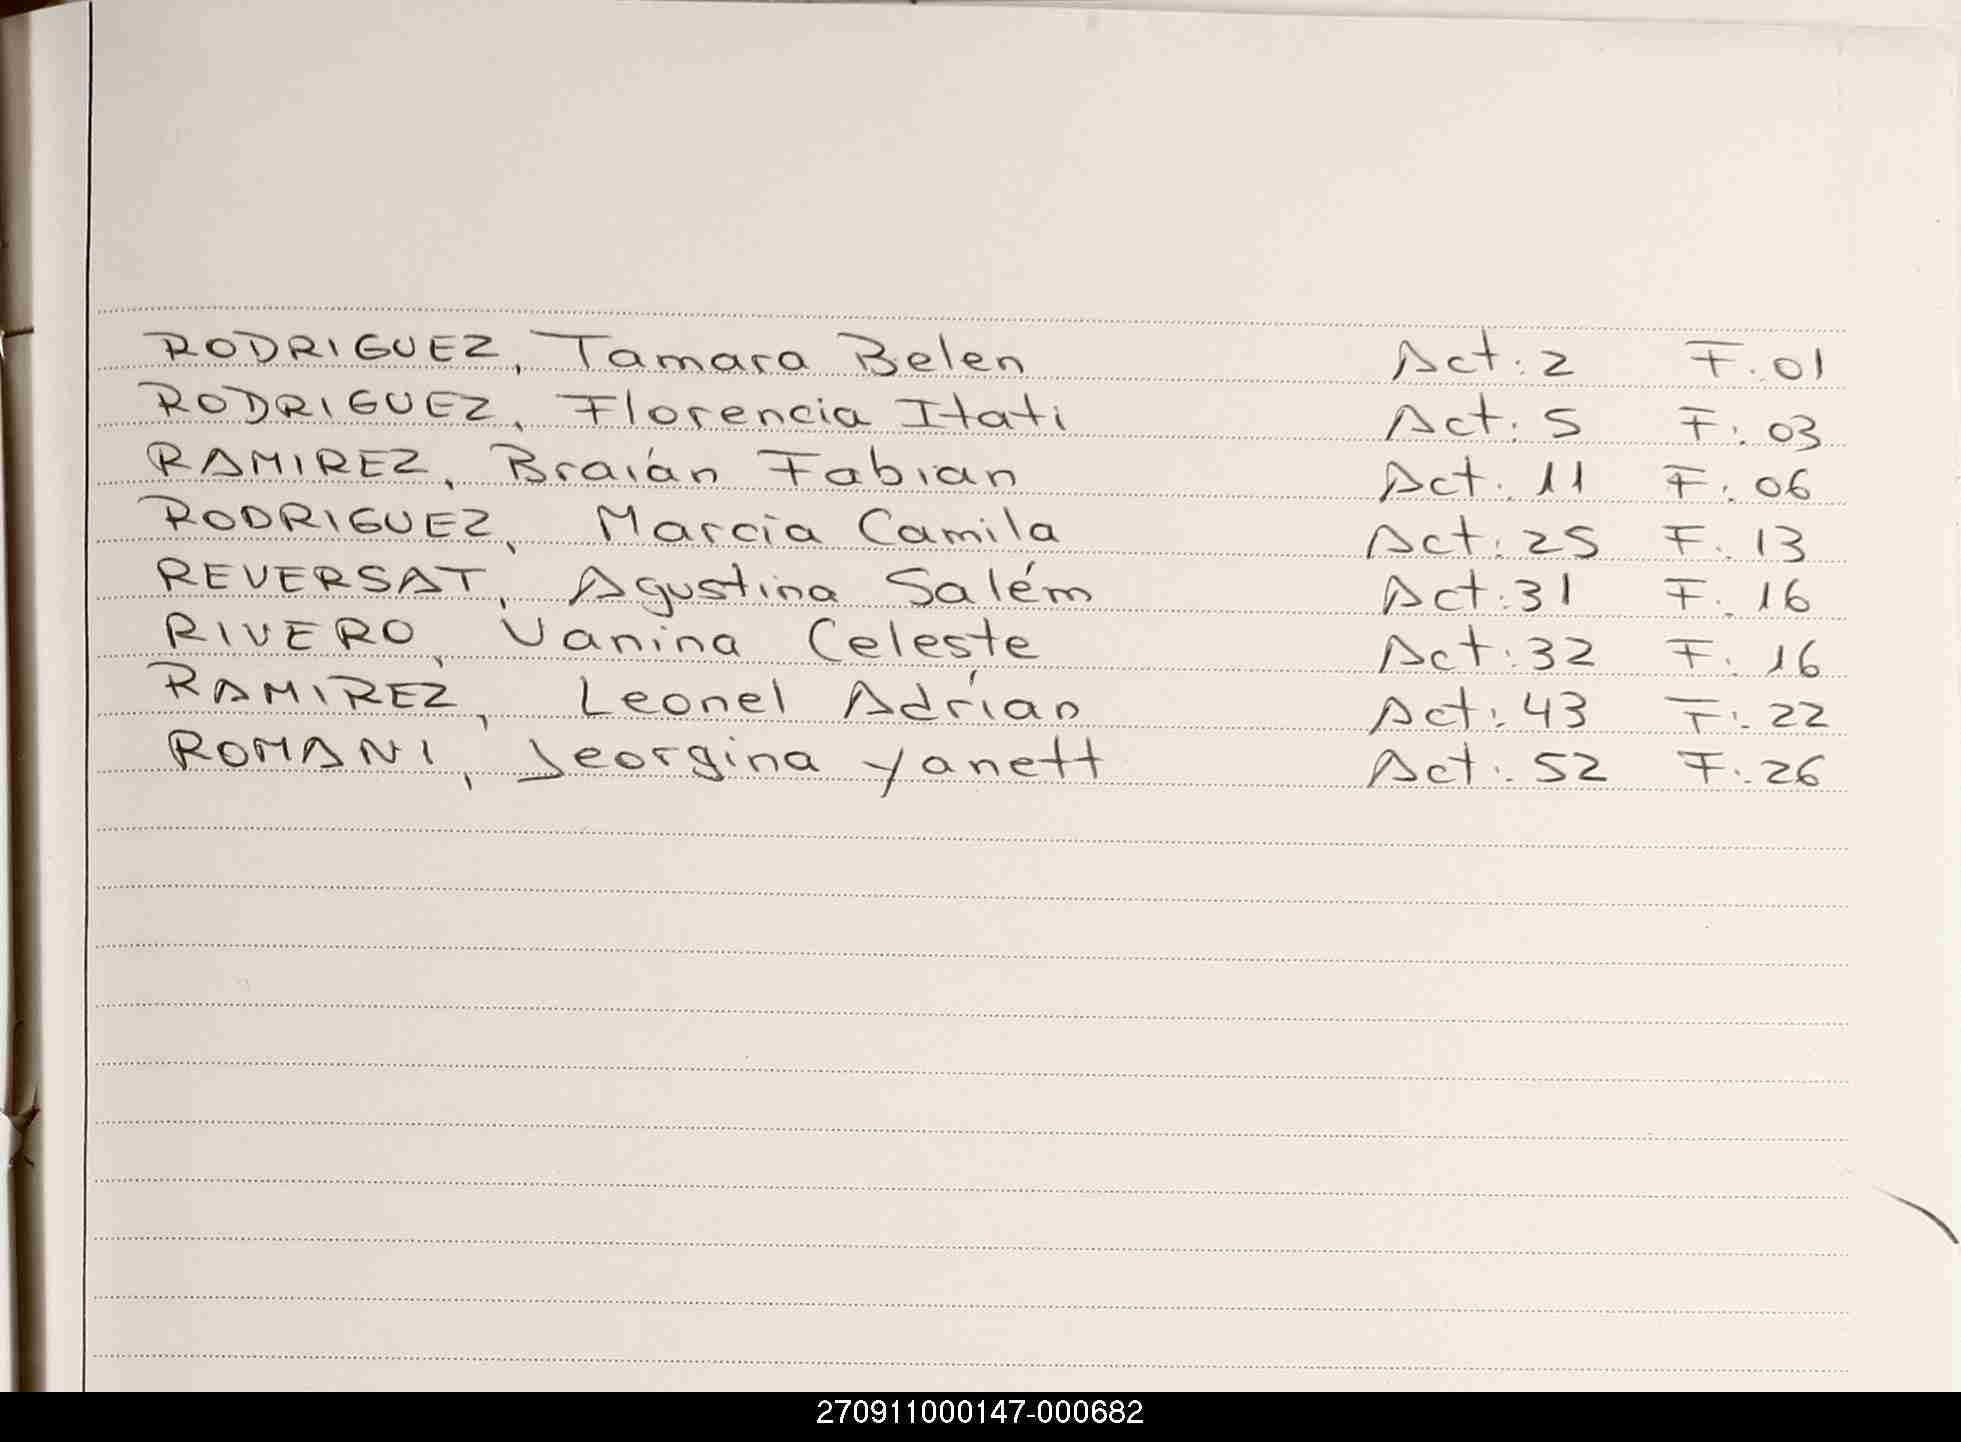 RODRIGUEZ, Tamara Belen Act: 2 F. 01
RODRIGUEZ, Florencia Itati Act: 5 F: 03
RAMIREZ, Braián Fabian Act: 11 F: 06
RODRIGUEZ, Marcia Camila Act: 25 F: 13
REVERSAT, Agustina Salém Act: 31 F: 16
RIVERO, Vanina Celeste Act: 32 F: 16
RAMIREZ, Leonel Adrían Act: 43 F: 22
ROMANI, Jeorgina Yanett Act: 52 F: 26
270911000147-000682